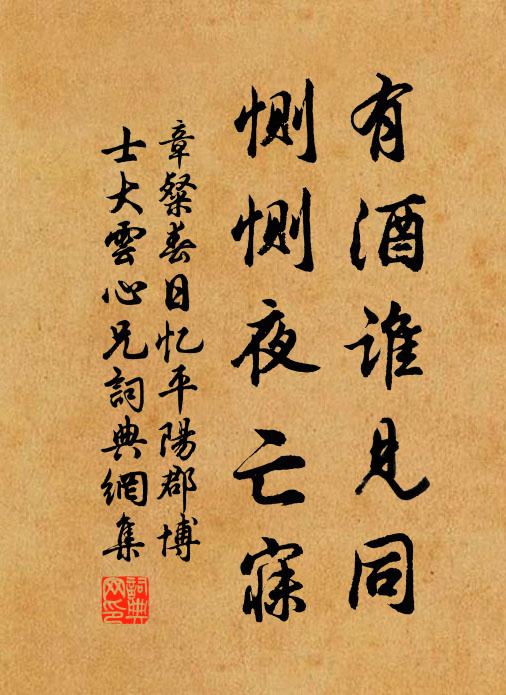 有酒谁見同
惻惻夜亡寐
章粲春日忆平陽郡博
士大雲心兄詞典網集
詞典
网印